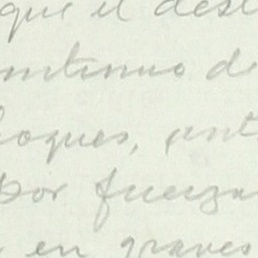 que el des
continuo de
oques, ant
por fuerza
en graves